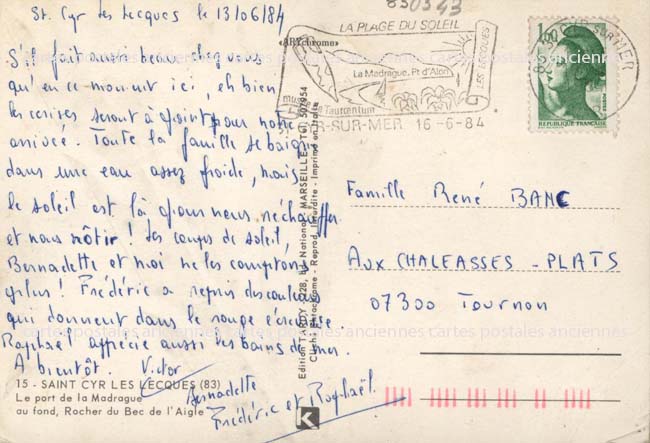 St. Cyr les Lecques le 13/06/84
S'il fait aussi beau chez vous
qu'en ce moment ici, eh bien
les cerises seront à point pour notre
arrivée. Toute la famille se baigne
dans une eau assez froide, mais
le soleil est là pour nous réchauffer
et nous rôtir ! Les coups de soleil,
Bernadette et moi ne les comptons
plus ! Frédéric a repris des couleurs
qui donnent dans le rouge écrevisse.
Raphaël apprécie aussi les bains de mer.
A bientôt. Victor
Bernadette
Frédéric et Raphaël.
15 - SAINT CYR LES LECQUES (83)
Le port de la Madrague
au fond, Rocher du Bec de l'Aigle
«ARYchrome»
Edition TARDY - 228, bd National, MARSEILLE - Tél. 507954
Cliché Ektachrome - Reprod. Interdite - Imprimé en Italie
K
830343
LA PLAGE DU SOLEIL
LES LECQUES
La Madrague, Pt d'Alon
musée de Tauroentum
CYR-SUR-MER 16-6-84
SUR-MER
1,00
REPUBLIQUE FRANÇAISE
POSTES
Famille René BANC
AUX CHALEASSES - PLATS
07300 Tournon
cartes postales anciennes cartes postales anciennes cartes postales anciennes